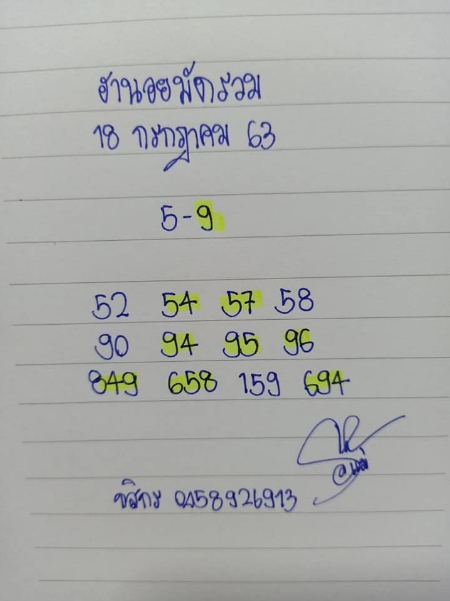 ฮานอยมัดรวม
18 กรกฎาคม 63
5-9
52 54 57 58
90 94 95 96
849 658 159 694
บริการ 0458926913